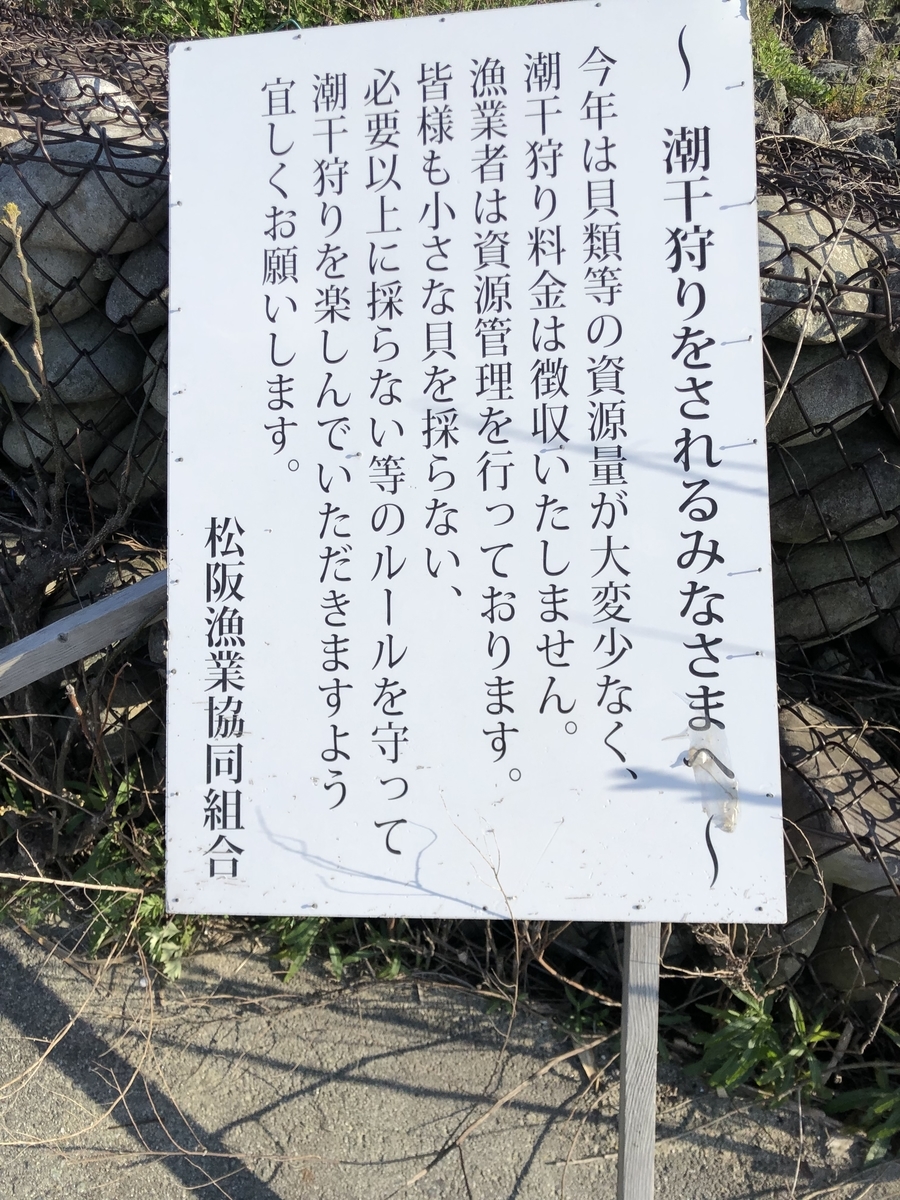 〜 潮干狩りをされるみなさま 〜
今年は貝類等の資源量が大変少なく、
潮干狩り料金は徴収いたしません。
漁業者は資源管理を行っております。
皆様も小さな貝を採らない、
必要以上に採らない等のルールを守って
潮干狩りを楽しんでいただきますよう
宜しくお願いします。
松阪漁業協同組合